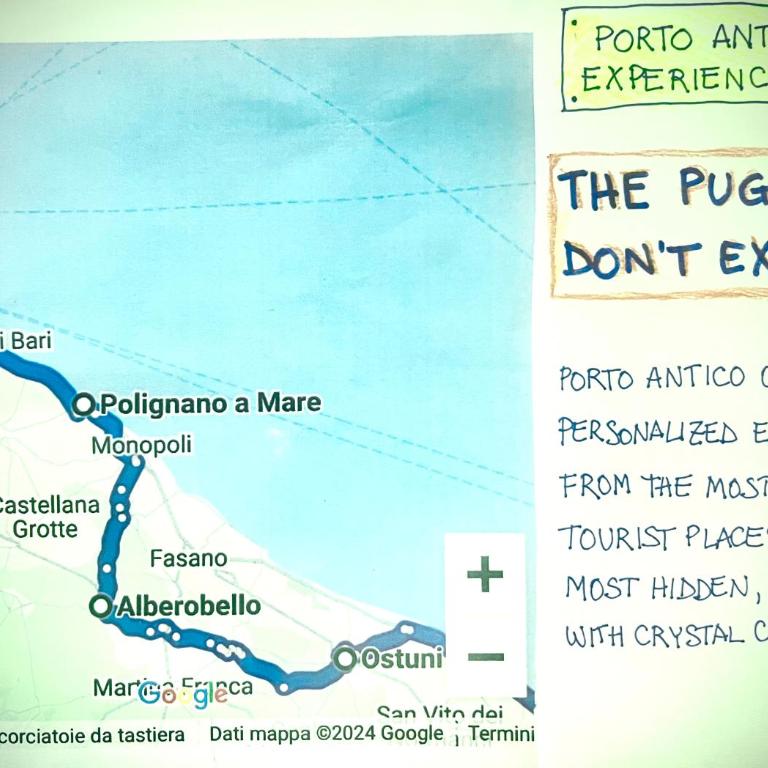 i Bari
Polignano a Mare
Monopoli
Castellana
Grotte
Fasano
Alberobello
Ostuni
Google
San Vito dei
corciatoie da tastiera
Dati mappa ©2024 Google
Termini
PORTO ANT
EXPERIENC
THE PUG
DON'T EX
PORTO ANTICO
PERSONALIZED E
FROM THE MOST
TOURIST PLACE
MOST HIDDEN,
WITH CRYSTAL C